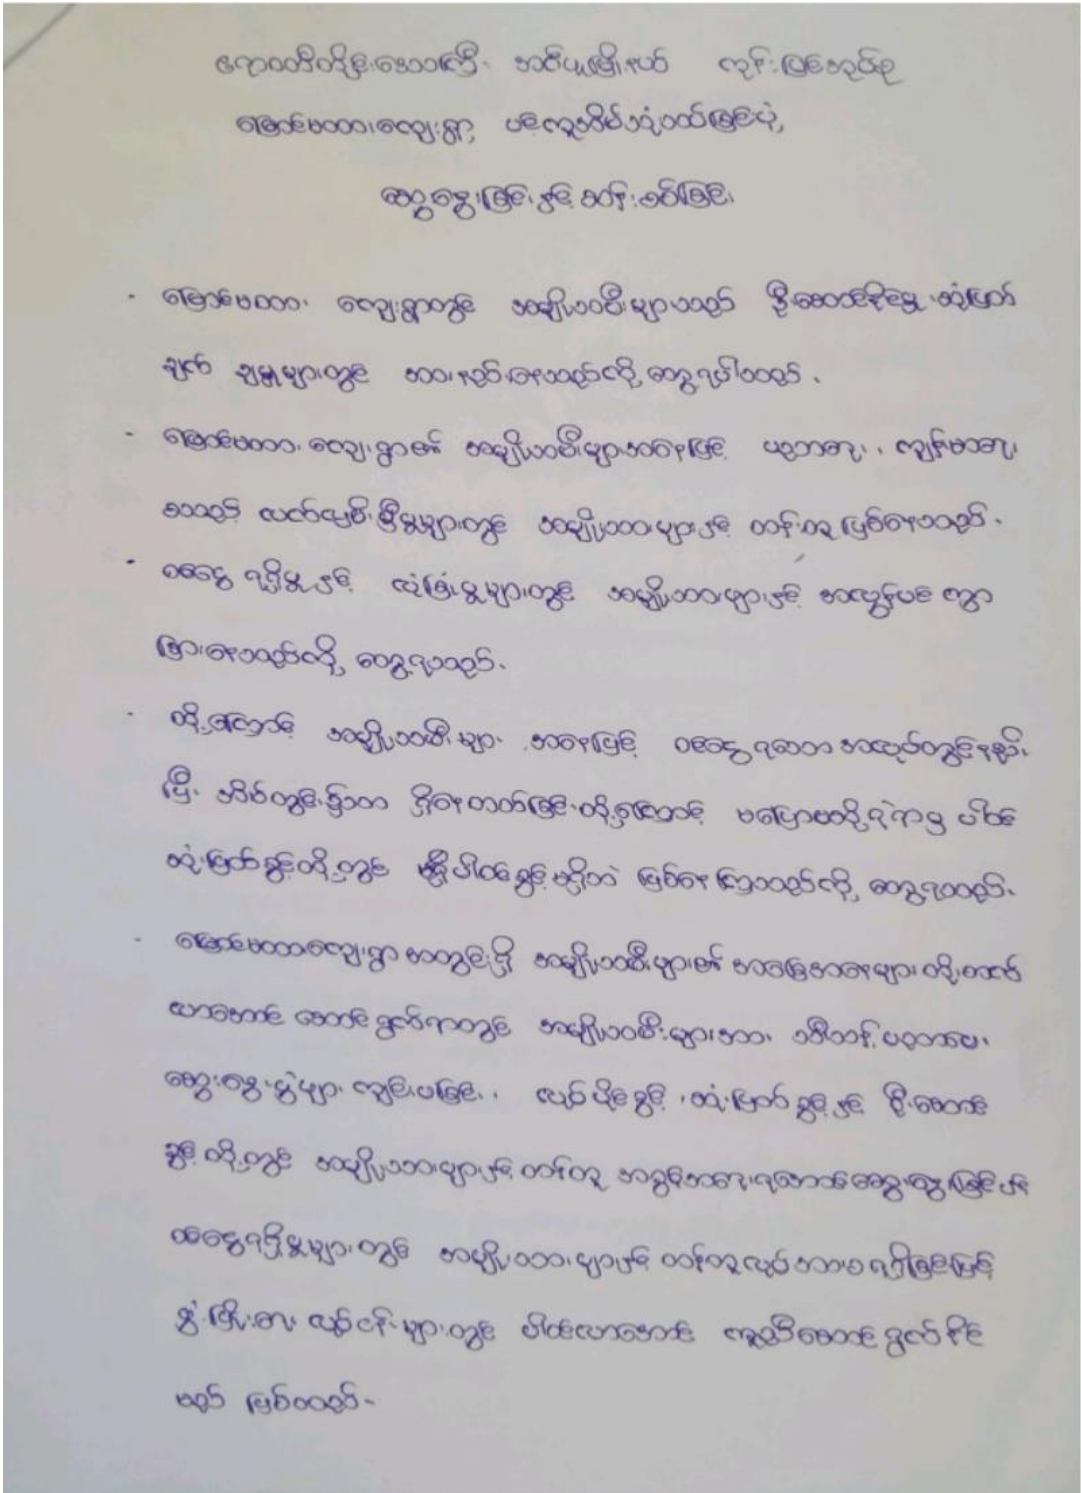 ဧရာဝတီတိုင်းဒေသကြီး အင်္ဂပူမြို့နယ် ကုန်းပြင်အုပ်စု
မြောင်မထားကျေးရွာ ပညာ့အိမ်သုံးသပ်ခြင်းပုံ့
ဆွေးနွေးခြင်းနှင့် ဆန်းစစ်ခြင်း
- မြောင်မထား ကျေးရွာတွင် အမျိုးသမီးများသည် ဦးဆောင်နိုင်မှု ၊ ဆုံးဖြတ်
ချက် ချမှုများတွင် အားနည်းနေသည်ကို တွေ့ရပါသည်။
- မြောင်မထား ကျေးရွာ၏ အမျိုးသမီးများအနေဖြင့် ပညာရေး ၊ ကျန်းမာရေး
စသည့် လက်လှမ်းမီမှုများတွင် အမျိုးသားများနှင့် တန်းတူဖြစ်နေသည်။
- ဝင်ငွေ ရရှိမှုနှင့် လုံခြုံမှုများတွင် အမျိုးသားများနှင့် အလွန်ပင် ကွာ
ခြားနေသည်ကို တွေ့ရသည်။
- ထို့ကြောင့် အမျိုးသမီးများ အနေဖြင့် ဝင်ငွေရသော အလုပ်တွင်နည်း
ပြီး အိမ်တွင်း၌သာ ရှိနေတတ်ခြင်းတို့ကြောင့် မပြောမဆိုရဲကာမှ ပါဝင်
ဆုံးဖြတ်ခွင့်တို့တွင် ပါဝင်ခွင့်မရှိဘဲ ဖြစ်နေကြသည်ကို တွေ့ရသည်။
- မြောင်မထားကျေးရွာ အတွင်းရှိ အမျိုးသမီးများ၏ အခြေအနေများ တိုးတက်
လာအောင် ဆောင်ရွက်ရာတွင် အမျိုးသမီးများအား အသိဉာဏ် ပညာပေး
ဆွေးနွေးပွဲများ ကျင်းပခြင်း ၊ လုပ်ပိုင်ခွင့် ၊ ဆုံးဖြတ်ခွင့်နှင့် ဦးဆောင်
ခွင့်တို့တွင် အမျိုးသားများနှင့် တန်းတူ အခွင့်အရေးရအောင်ဆွေးနွေးခြင်းနှင့်
ဝင်ငွေရရှိမှုများတွင် အမျိုးသားများနှင့် တန်းတူလုပ်အားခရရှိခြင်းဖြင့်
ဖွံ့ဖြိုးရေး လုပ်ငန်းများတွင် ပါဝင်လာအောင် ကူညီဆောင်ရွက်နိုင်
မည် ဖြစ်သည်။